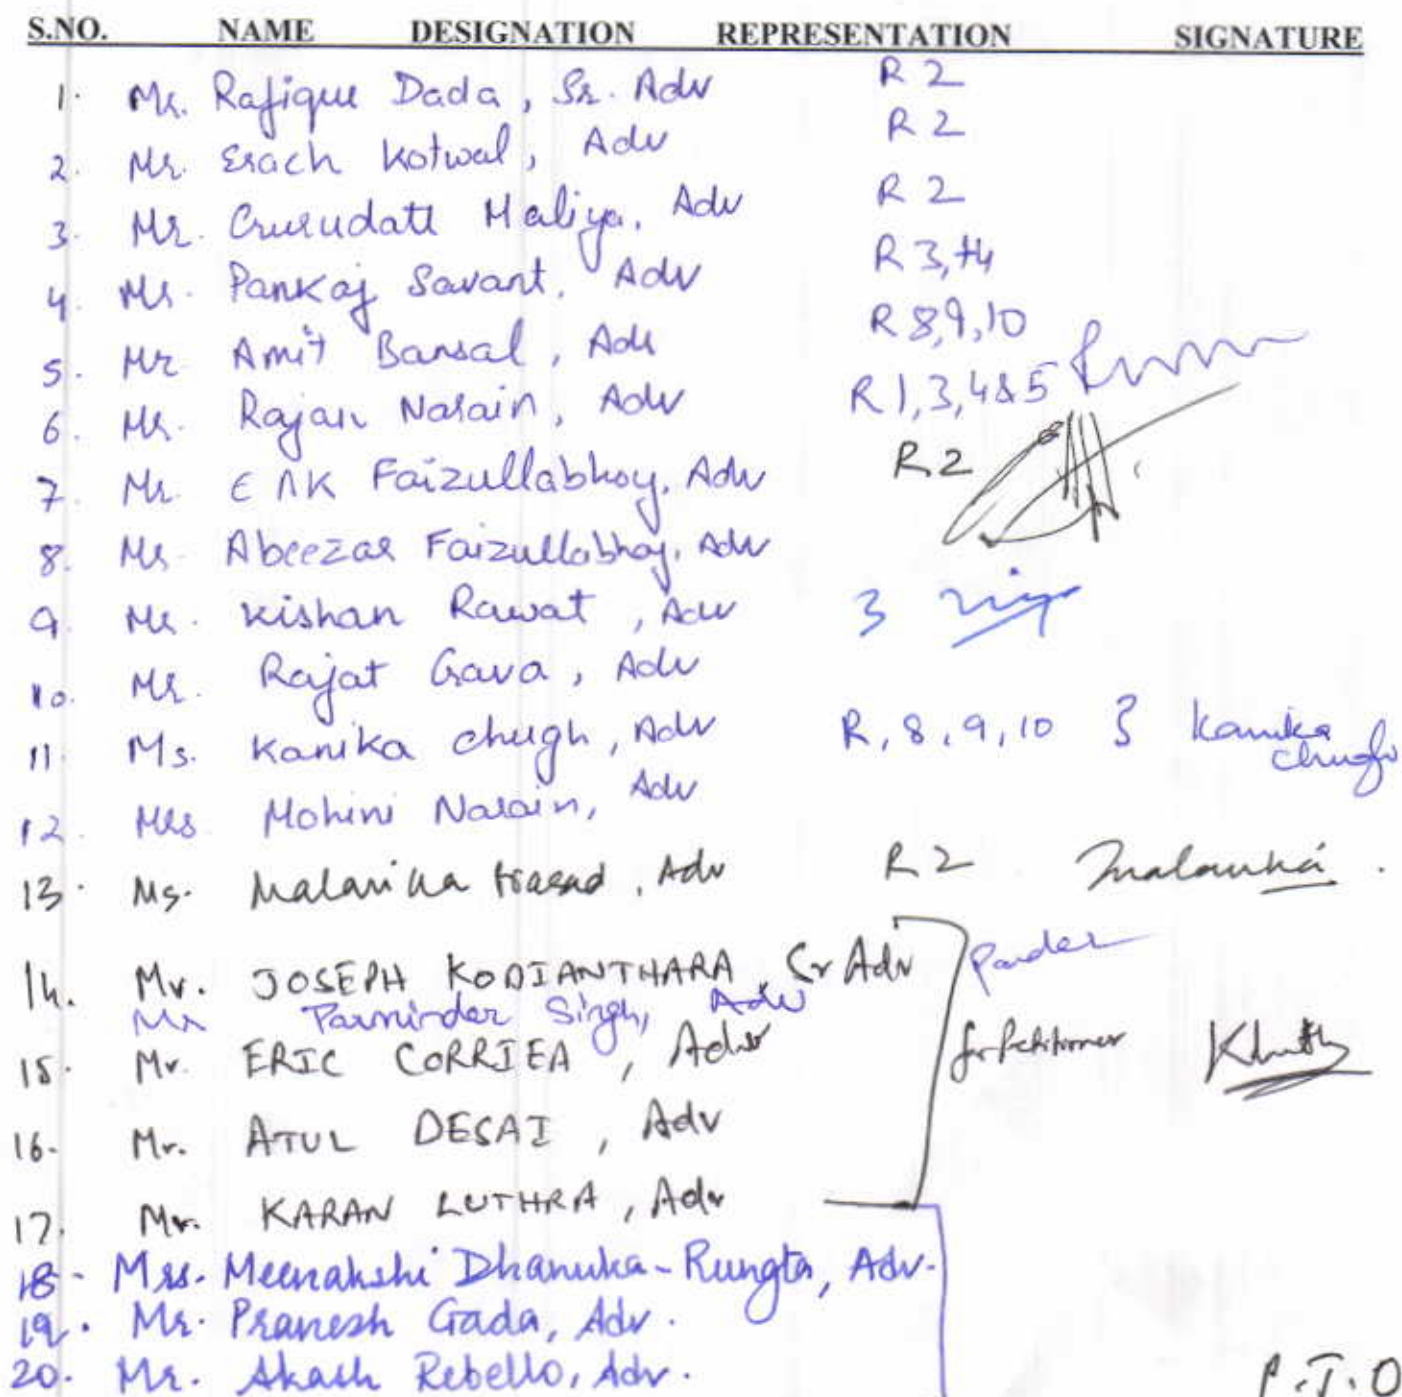 S.NO. NAME DESIGNATION REPRESENTATION SIGNATURE
1. Mr. Rafique Dada, Sr. Adv R 2
2. Mr. Erach Kotwal, Adv R 2
3. Mr. Gurudatt Maliya, Adv R 2
4. Mr. Pankaj Savant, Adv R 3, +4
5. Mr Amit Bansal, Adv R 8,9,10
6. Mr. Rajan Narain, Adv R 1,3,4&5
7. Mr. E Faizullabhoy, Adv R 2
8. Mr. Abeezar Faizullabhoy, Adv
9. Mr. Kishan Rawat, Adv 3
10. Mr. Rajat Gava, Adv
11. Ms. Kanika Chugh, Adv R, 8, 9, 10 } Kanika Chugh
12. Mrs Mohini Narain, Adv
13. Ms. Malavika Prasad, Adv R 2 Malavika.
14. Mr. JOSEPH KODIANTHARA, Sr Adv
Mr Parminder Singh, Adv
15. Mr. ERIC CORRIEA, Adv for Petitioner
16. Mr. ATUL DESAI, Adv
17. Mr. KARAN LUTHRA, Adv
18- Mrs. Meenakshi Dhanuka-Rungta, Adv.
19. Mr. Pranesh Gada, Adv.
20. Mr. Akash Rebello, Adv. P.T.O